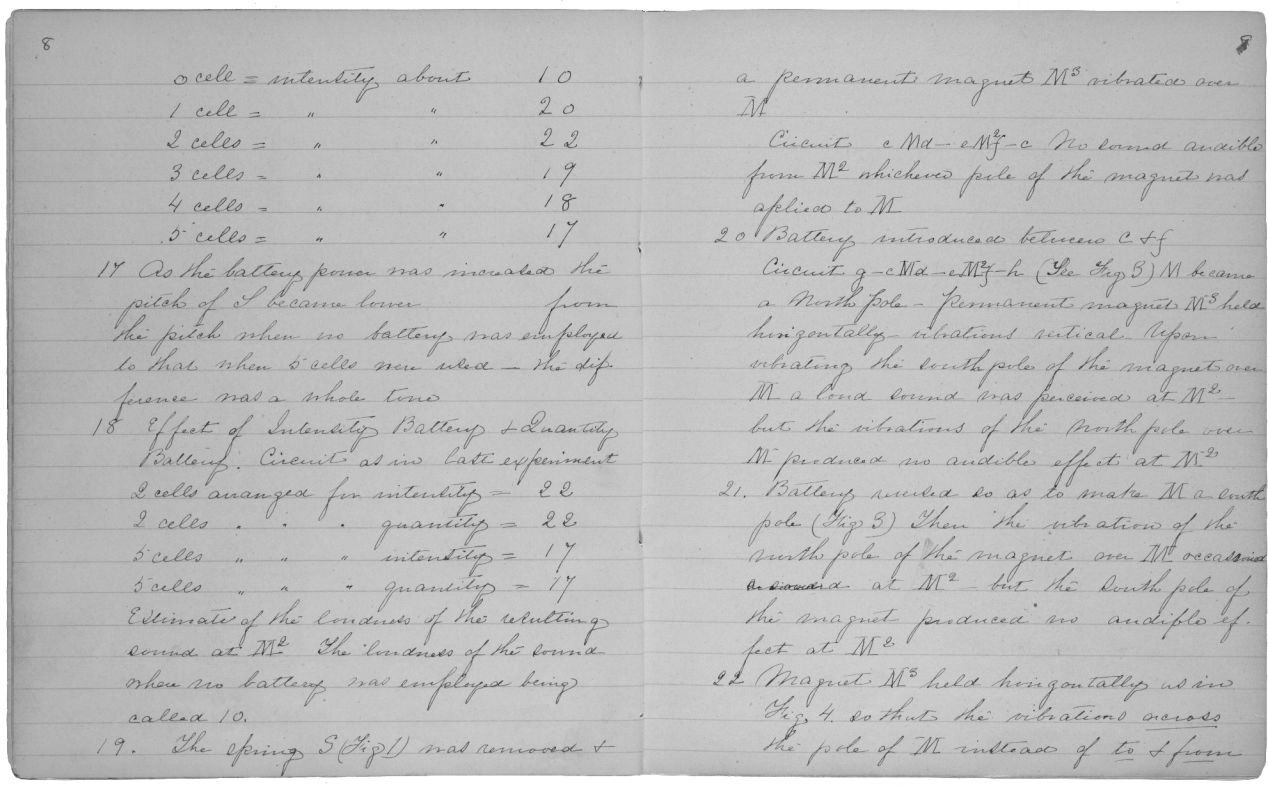 8
0 cell = intensity about 10
1 cell = " " 20
2 cells = " " 22
3 cells = " " 19
4 cells = " " 18
5 cells = " " 17
17 As the battery power was increased the
pitch of S became lower from
the pitch when no battery was employed
to that when 5 cells were used — the dif
ference was a whole tone
18 Effect of Intensity Battery & Quantity
Battery. Circuit as in last experiment
2 cells arranged for intensity = 22
2 cells " " " quantity = 22
5 cells " " " intensity = 17
5 cells " " " quantity = 17
Estimate of the loudness of the resulting
sound at M²  The loudness of the sound
when no battery was employed being
called 10.
19. The spring S (Fig 1) was removed &
9
a permanent magnet M³ vibrated over
M
Circuit c M d — e M² f — c No sound audible
from M² whichever pole of the magnet was
applied to M
20 Battery introduced between c & f
Circuit g — c M d — e M² f — h (See Fig 3) M became
a North pole — permanent magnet M³ held
horizontally — vibrations vertical. Upon
vibrating the south pole of the magnet over
M a loud sound was perceived at M² —
but the vibrations of the North pole over
M produced no audible effect at M²
21. Battery reversed so as to make M a south
pole (Fig 3) Then the vibration of the
north pole of the magnet over M occasioned
a sound at M² — but the south pole of
the magnet produced no audible ef-
fect at M²
22 Magnet M³ held horizontally as in
Fig 4. so that the vibrations across
the pole of M instead of to & from